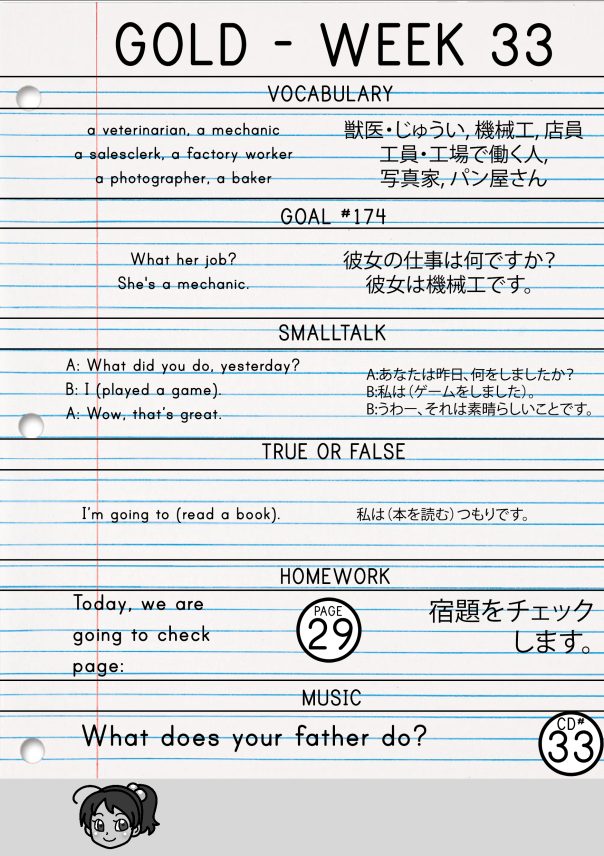 GOLD - WEEK 33
VOCABULARY
a veterinarian, a mechanic
a salesclerk, a factory worker
a photographer, a baker
獣医・じゅうい, 機械工, 店員
工員・工場で働く人,
写真家, パン屋さん
GOAL #174
What her job?
She's a mechanic.
彼女の仕事は何ですか?
彼女は機械工です。
SMALLTALK
A: What did you do, yesterday?
B: I (played a game).
A: Wow, that's great.
A:あなたは昨日、何をしましたか?
B:私は(ゲームをしました)。
B:うわー、それは素晴らしいことです。
TRUE OR FALSE
I'm going to (read a book).
私は(本を読む)つもりです。
HOMEWORK
Today, we are
going to check
page:
PAGE
29
宿題をチェック
します。
MUSIC
What does your father do?
CD#
33